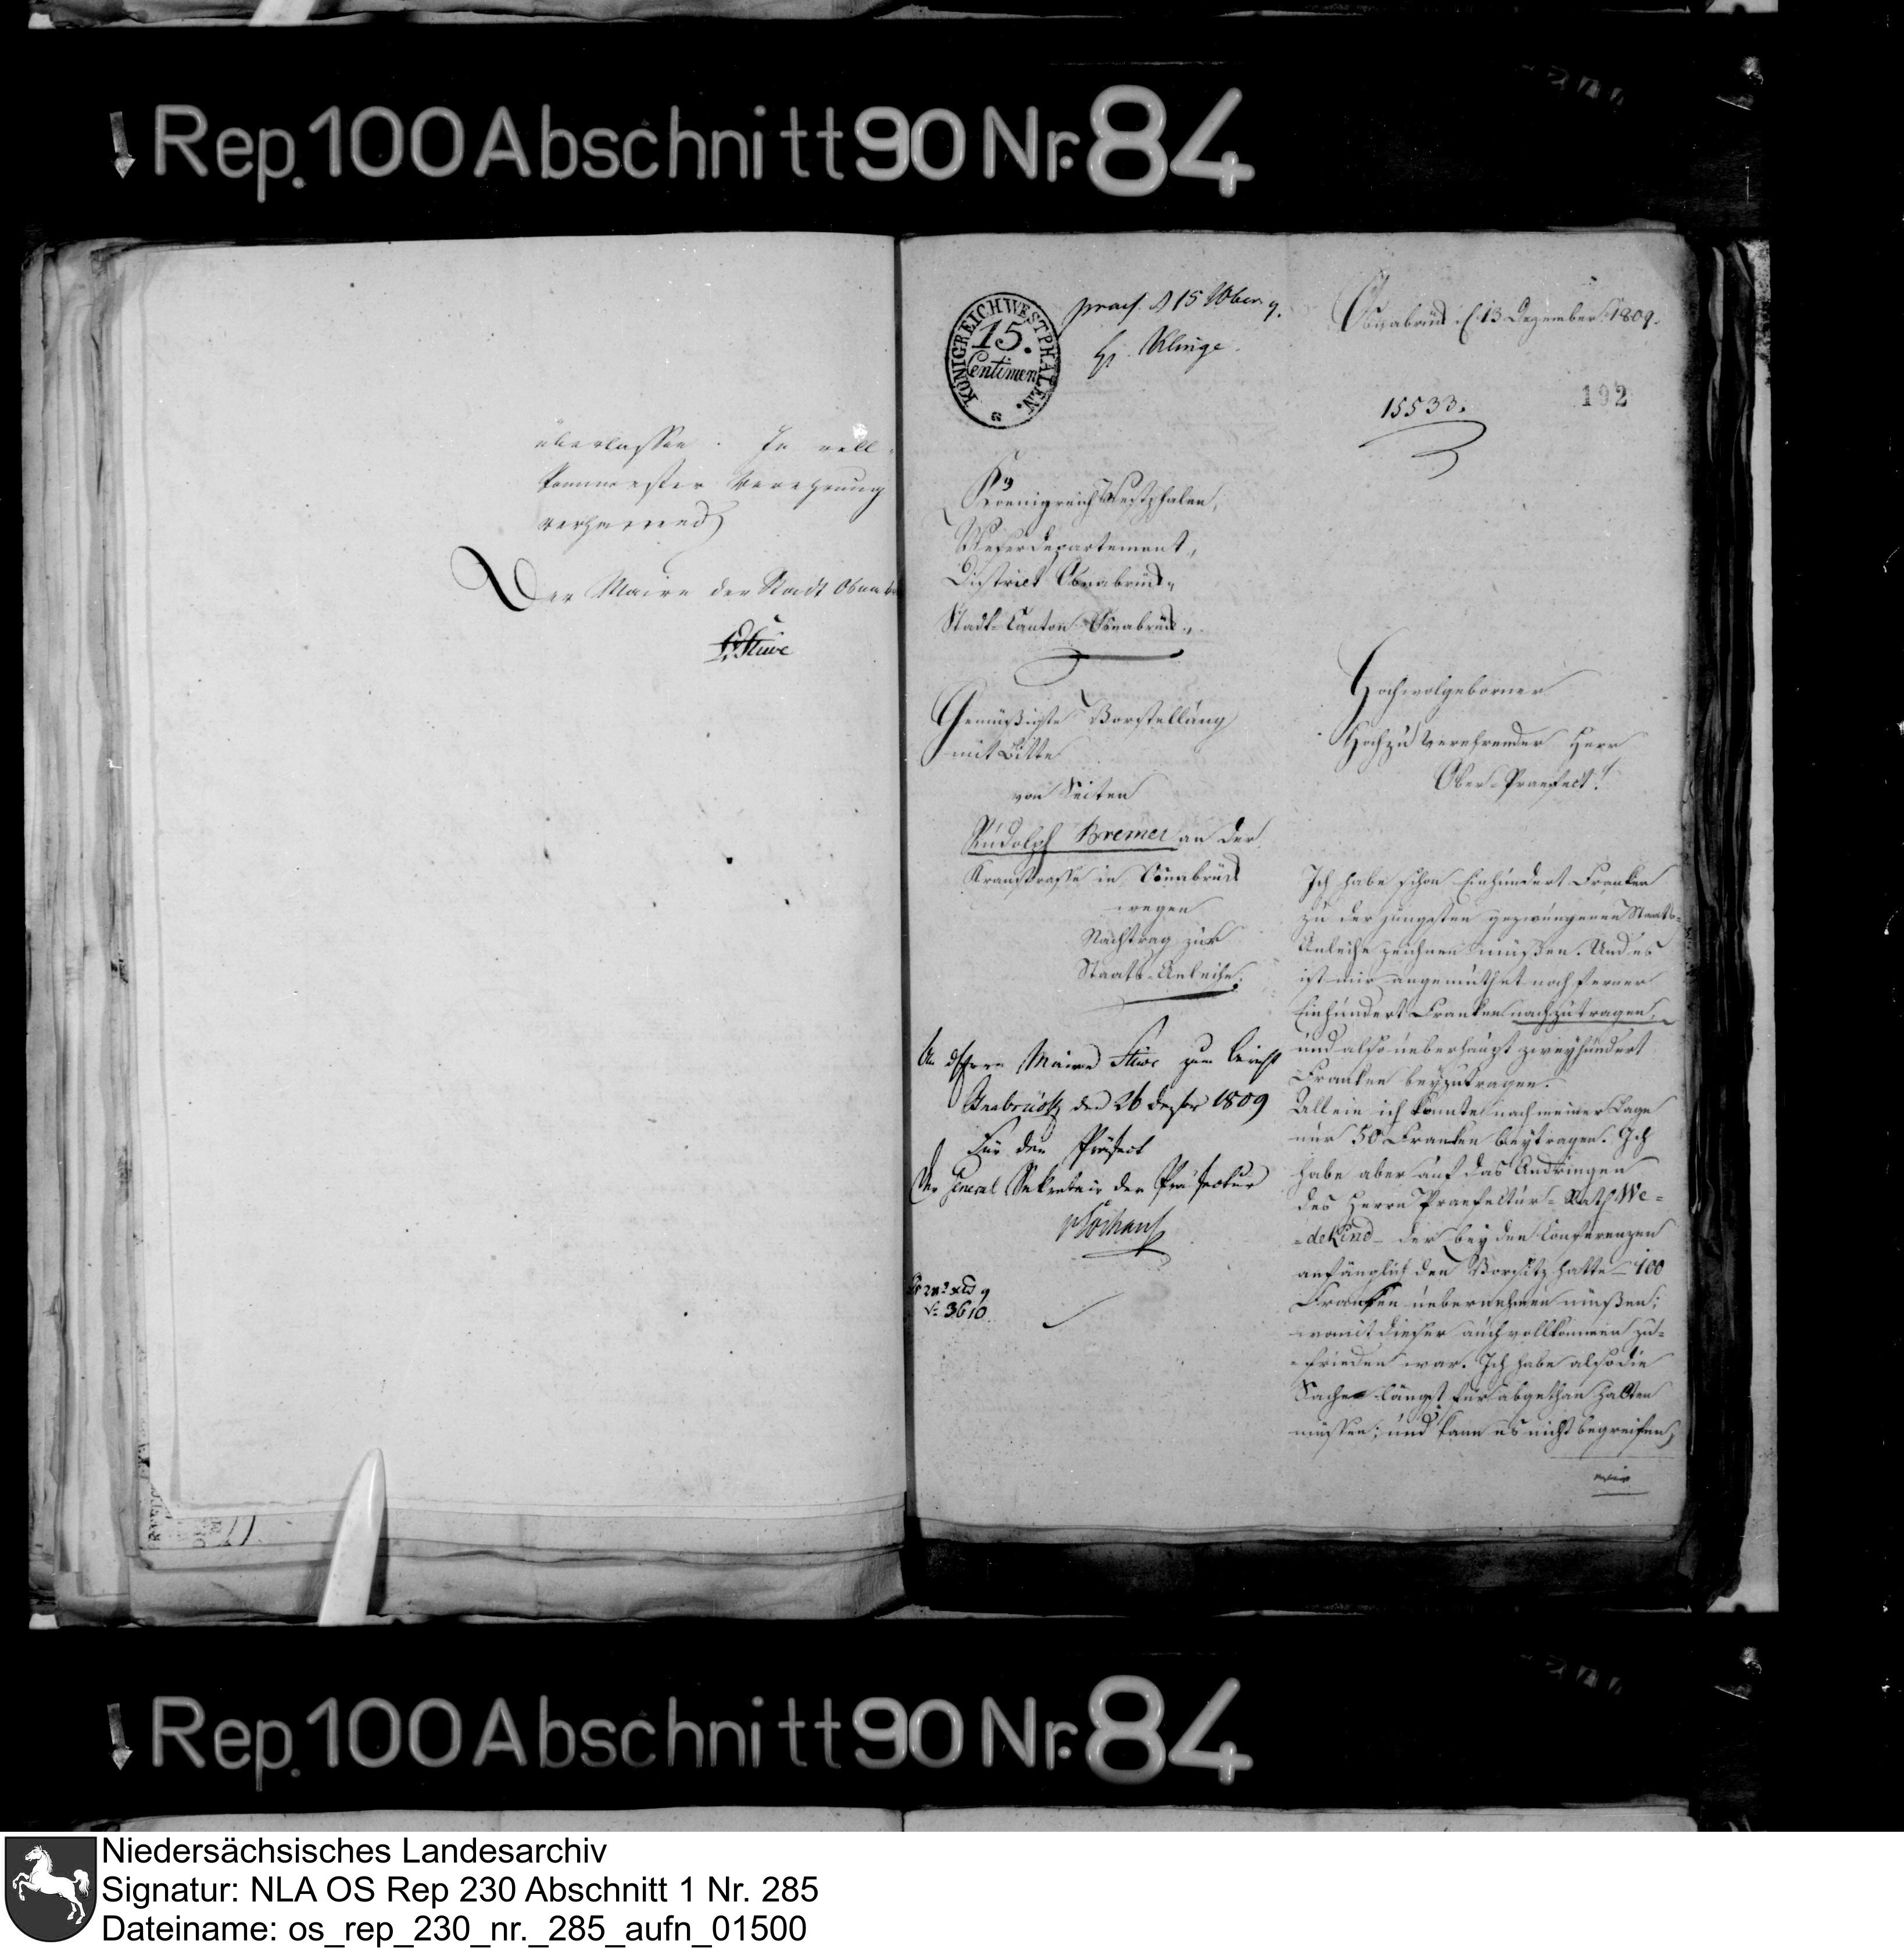 Rep. 100 Abschnitt 90 Nr. 84
überlassen. In voll-
kommenster Verehrung
verharrend
Der Maire der Stadt Osnab
Stüve
KÖNIGREICH WESTPHALEN.
15.
Centimen
praes. d 15 Xber 9.
H. Klinge.
Osnabrück d. 13 Dezember 1809.
15533.
192
Koenigreich Westphalen,
Weserdepartement,
District Osnabrück,
Stadt-Canton Osnabrück,
Gemüßigste Vorstellung
mit Bitte
von Seiten
Rudolph Bremer an der
Kramstrasse in Osnabrück
wegen
Nachtrag zur
Staats-Anleihe.
An Herrn Maire Stüve zum Bericht
Osnabrück den 26 Dezbr 1809
Für den Präfect
Der General Sekretair der Präfectur
No 3610.
Hochwolgeborner
Hochzuverehrender Herr
Ober-Praefect!
Ich habe schon Einhundert Franken
zu der jüngsten gezwungenen Staats-
Anleihe zeichnen müßen. Und es
ist mir angemuthet noch ferner
Einhundert Franken nachzutragen,
und also ueberhaupt zweyhundert
Franken beyzutragen.
Allein ich konnte nach meiner Lage
nur 50 Franken beytragen. Ich
habe aber auf das Andringen
des Herrn Praefectur-Rath We-
-dekind - der bey den Conferenzen
anfänglich den Vorsitz hatte - 100
Franken uebernehmen müßen;
womit dieser auch vollkommen zu-
-frieden war. Ich habe also die
Sache längst für abgethan halten
müssen; und kann es nicht begreifen,
wie
Rep. 100 Abschnitt 90 Nr. 84
Niedersächsisches Landesarchiv
Signatur: NLA OS Rep 230 Abschnitt 1 Nr. 285
Dateiname: os_rep_230_nr._285_aufn_01500